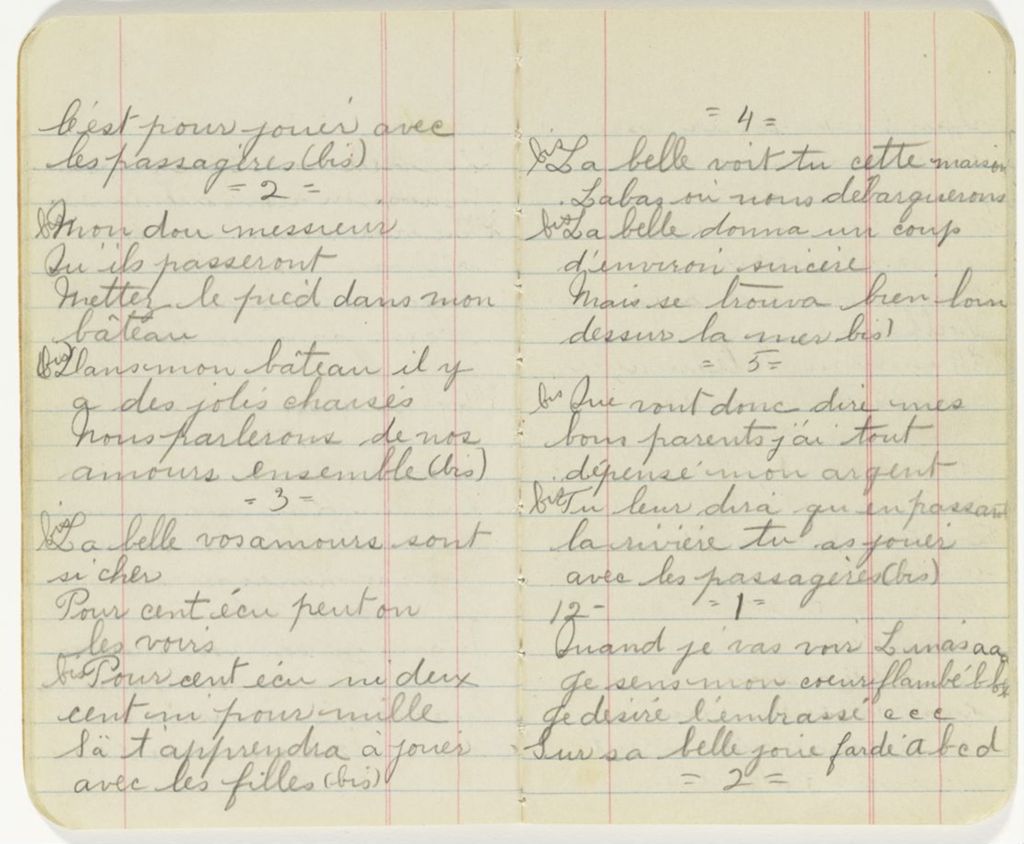 C'est pour jouér avec
les passagères (bis)
= 2 =
bis Mon dou messieur
Qu'ils passeront
Mettez le pied dans mon
bâteau
(bis) Dans mon bâteau il y
a des jolis chaisés
Nous parlerons de nos
amours ensemble (bis)
= 3 =
bis La belle vos amours sont
si cher
Pour cent écu peut on
les voirs
bis Pour cent écu ni deux
cent ni pour mille
Sä t'apprendra à jouér
avec les filles (bis)
= 4 =
bis La belle voit tu cette maison
Labas où nous débarquerons
bis La belle donna un coup
d'environ sincère
Mais se trouva bien loin
dessur la mer bis)
= 5 =
bis Que vont donc diré mes
bons parents j'ai tout
dépensé mon argent
bis Tu leur dira qu'en passant
la rivière tu as jouér
avec les passagères (bis)
12 - = 1 =
Quand jé vas voir L inás a a
Je sens mon coeur flambé b b
Je desiré l'embrassé c c c
Sur sa belle joue fardé a b c d
= 2 =